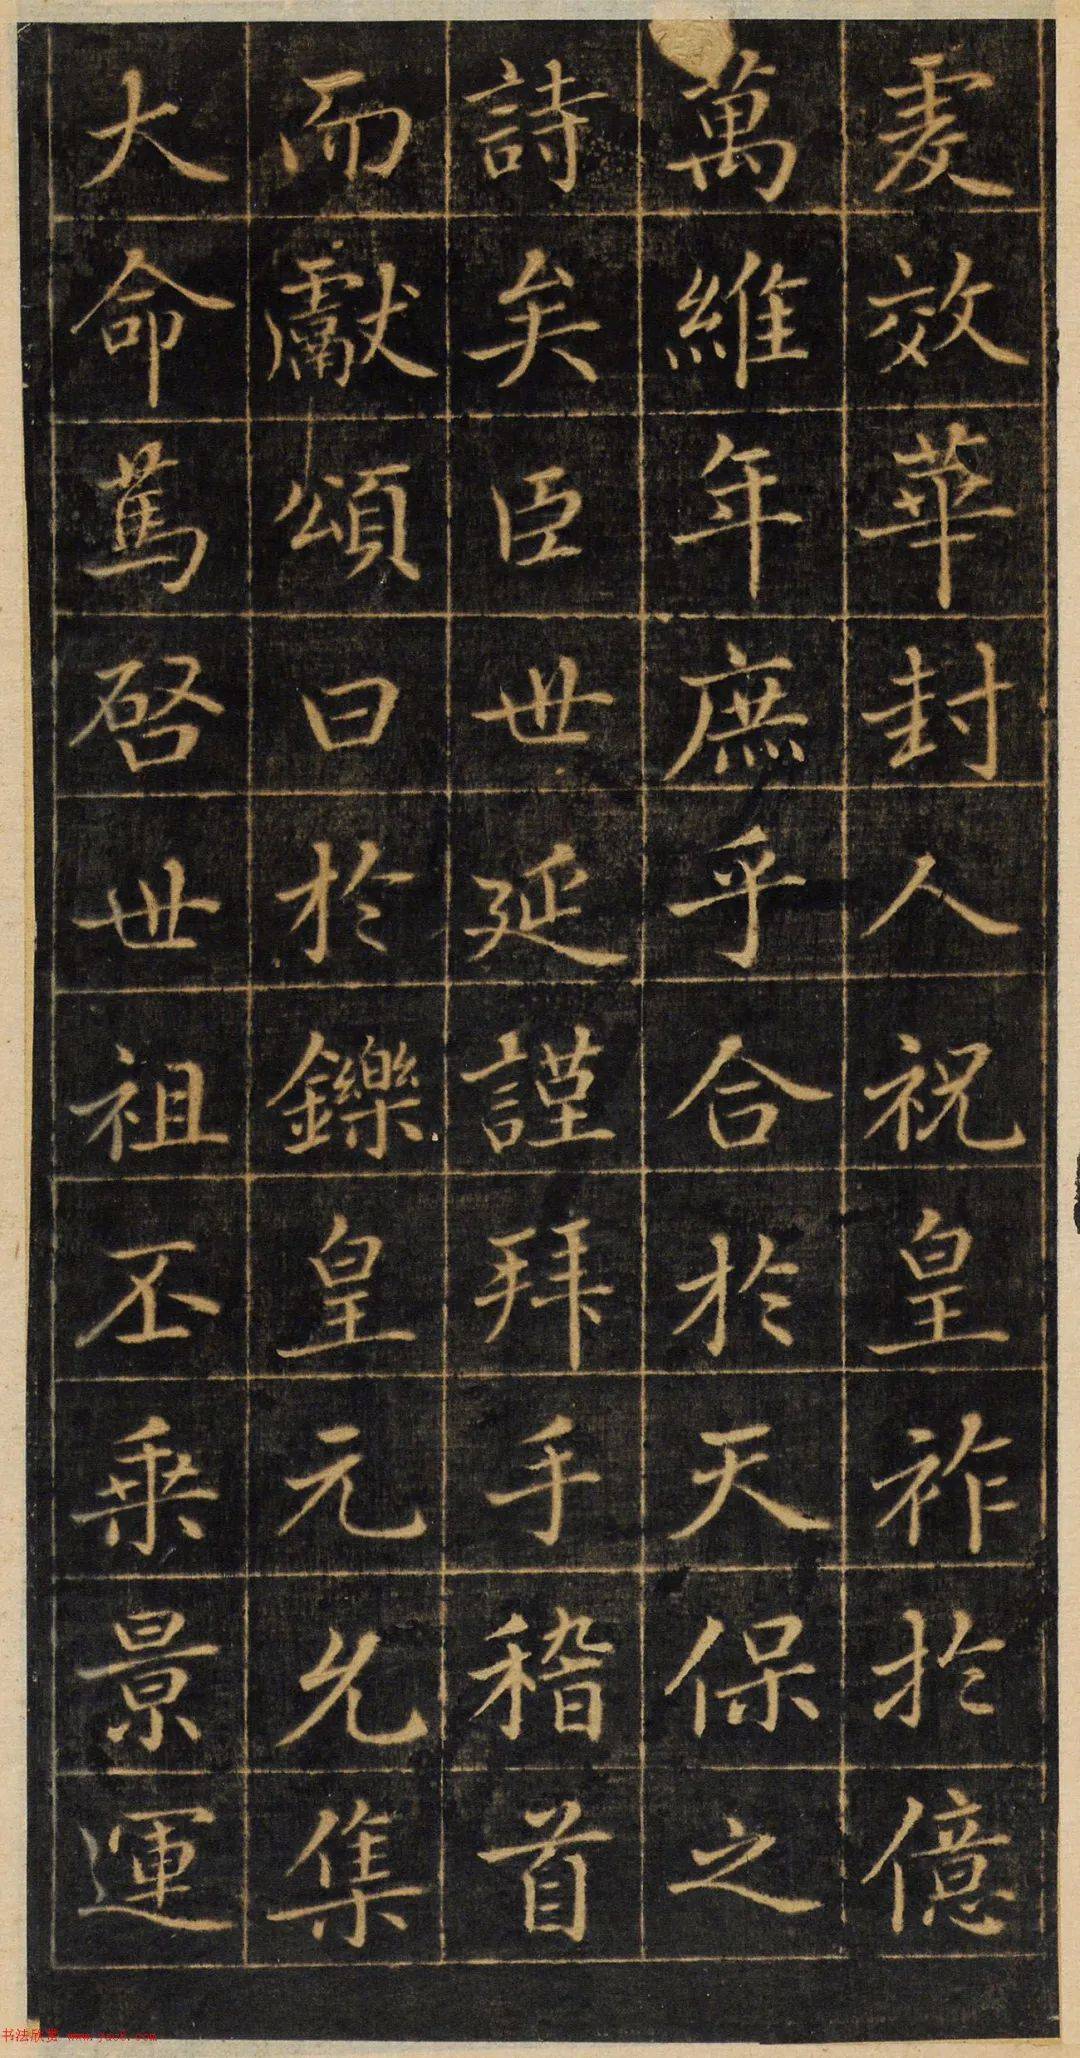 叟效華封人祝皇祚於億
萬維年庶乎合於天保之
詩矣臣世延謹拜手稽首
而獻頌曰於鑠皇元允集
大命篤啓世祖丕乗景運
书法欣赏 www.yac8.com